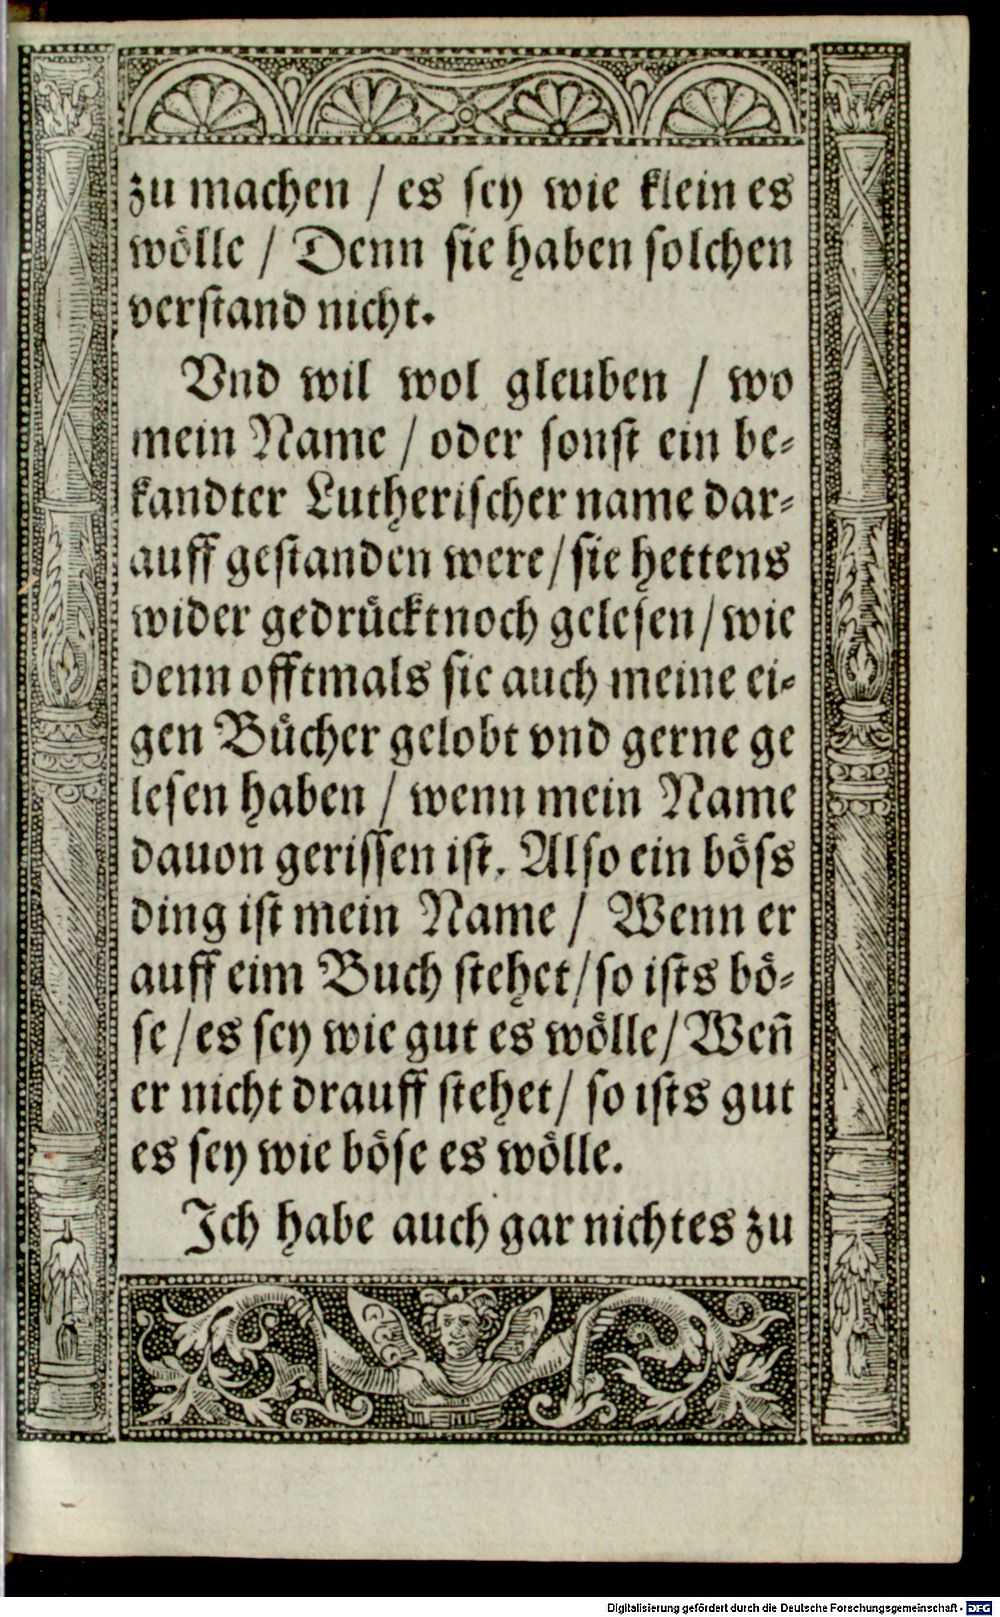 zu machen / es sey wie klein es
wölle / Denn sie haben solchen
verstand nicht.
Vnd wil wol gleuben / wo
mein Name / oder sonst ein be-
kandter Lutherischer name dar-
auff gestanden were / sie hettens
wider gedrückt noch gelesen / wie
denn offtmals sie auch meine ei-
gen Bücher gelobt vnd gerne ge
lesen haben / wenn mein Name
dauon gerissen ist. Also ein böss
ding ist mein Name / Wenn er
auff eim Buch stehet / so ists bö-
se / es sey wie gut es wölle / Weñ
er nicht drauff stehet / so ists gut
es sey wie böse es wölle.
Ich habe auch gar nichtes zu
Digitalisierung gefördert durch die Deutsche Forschungsgemeinschaft - DFG